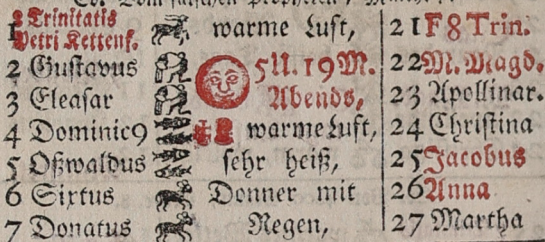 8 Trinitatis
1 Petri Kettenf. warme Luft, 21 F 8 Trin.
2 Gustavus 5 U. 19 M. 22 M. Magd.
3 Eleasar Abends, 23 Apollinar.
4 Dominic9 warme Luft, 24 Christina
5 Oßwaldus sehr heiß, 25 Jacobus
6 Sixtus Donner mit 26 Anna
7 Donatus Regen, 27 Martha